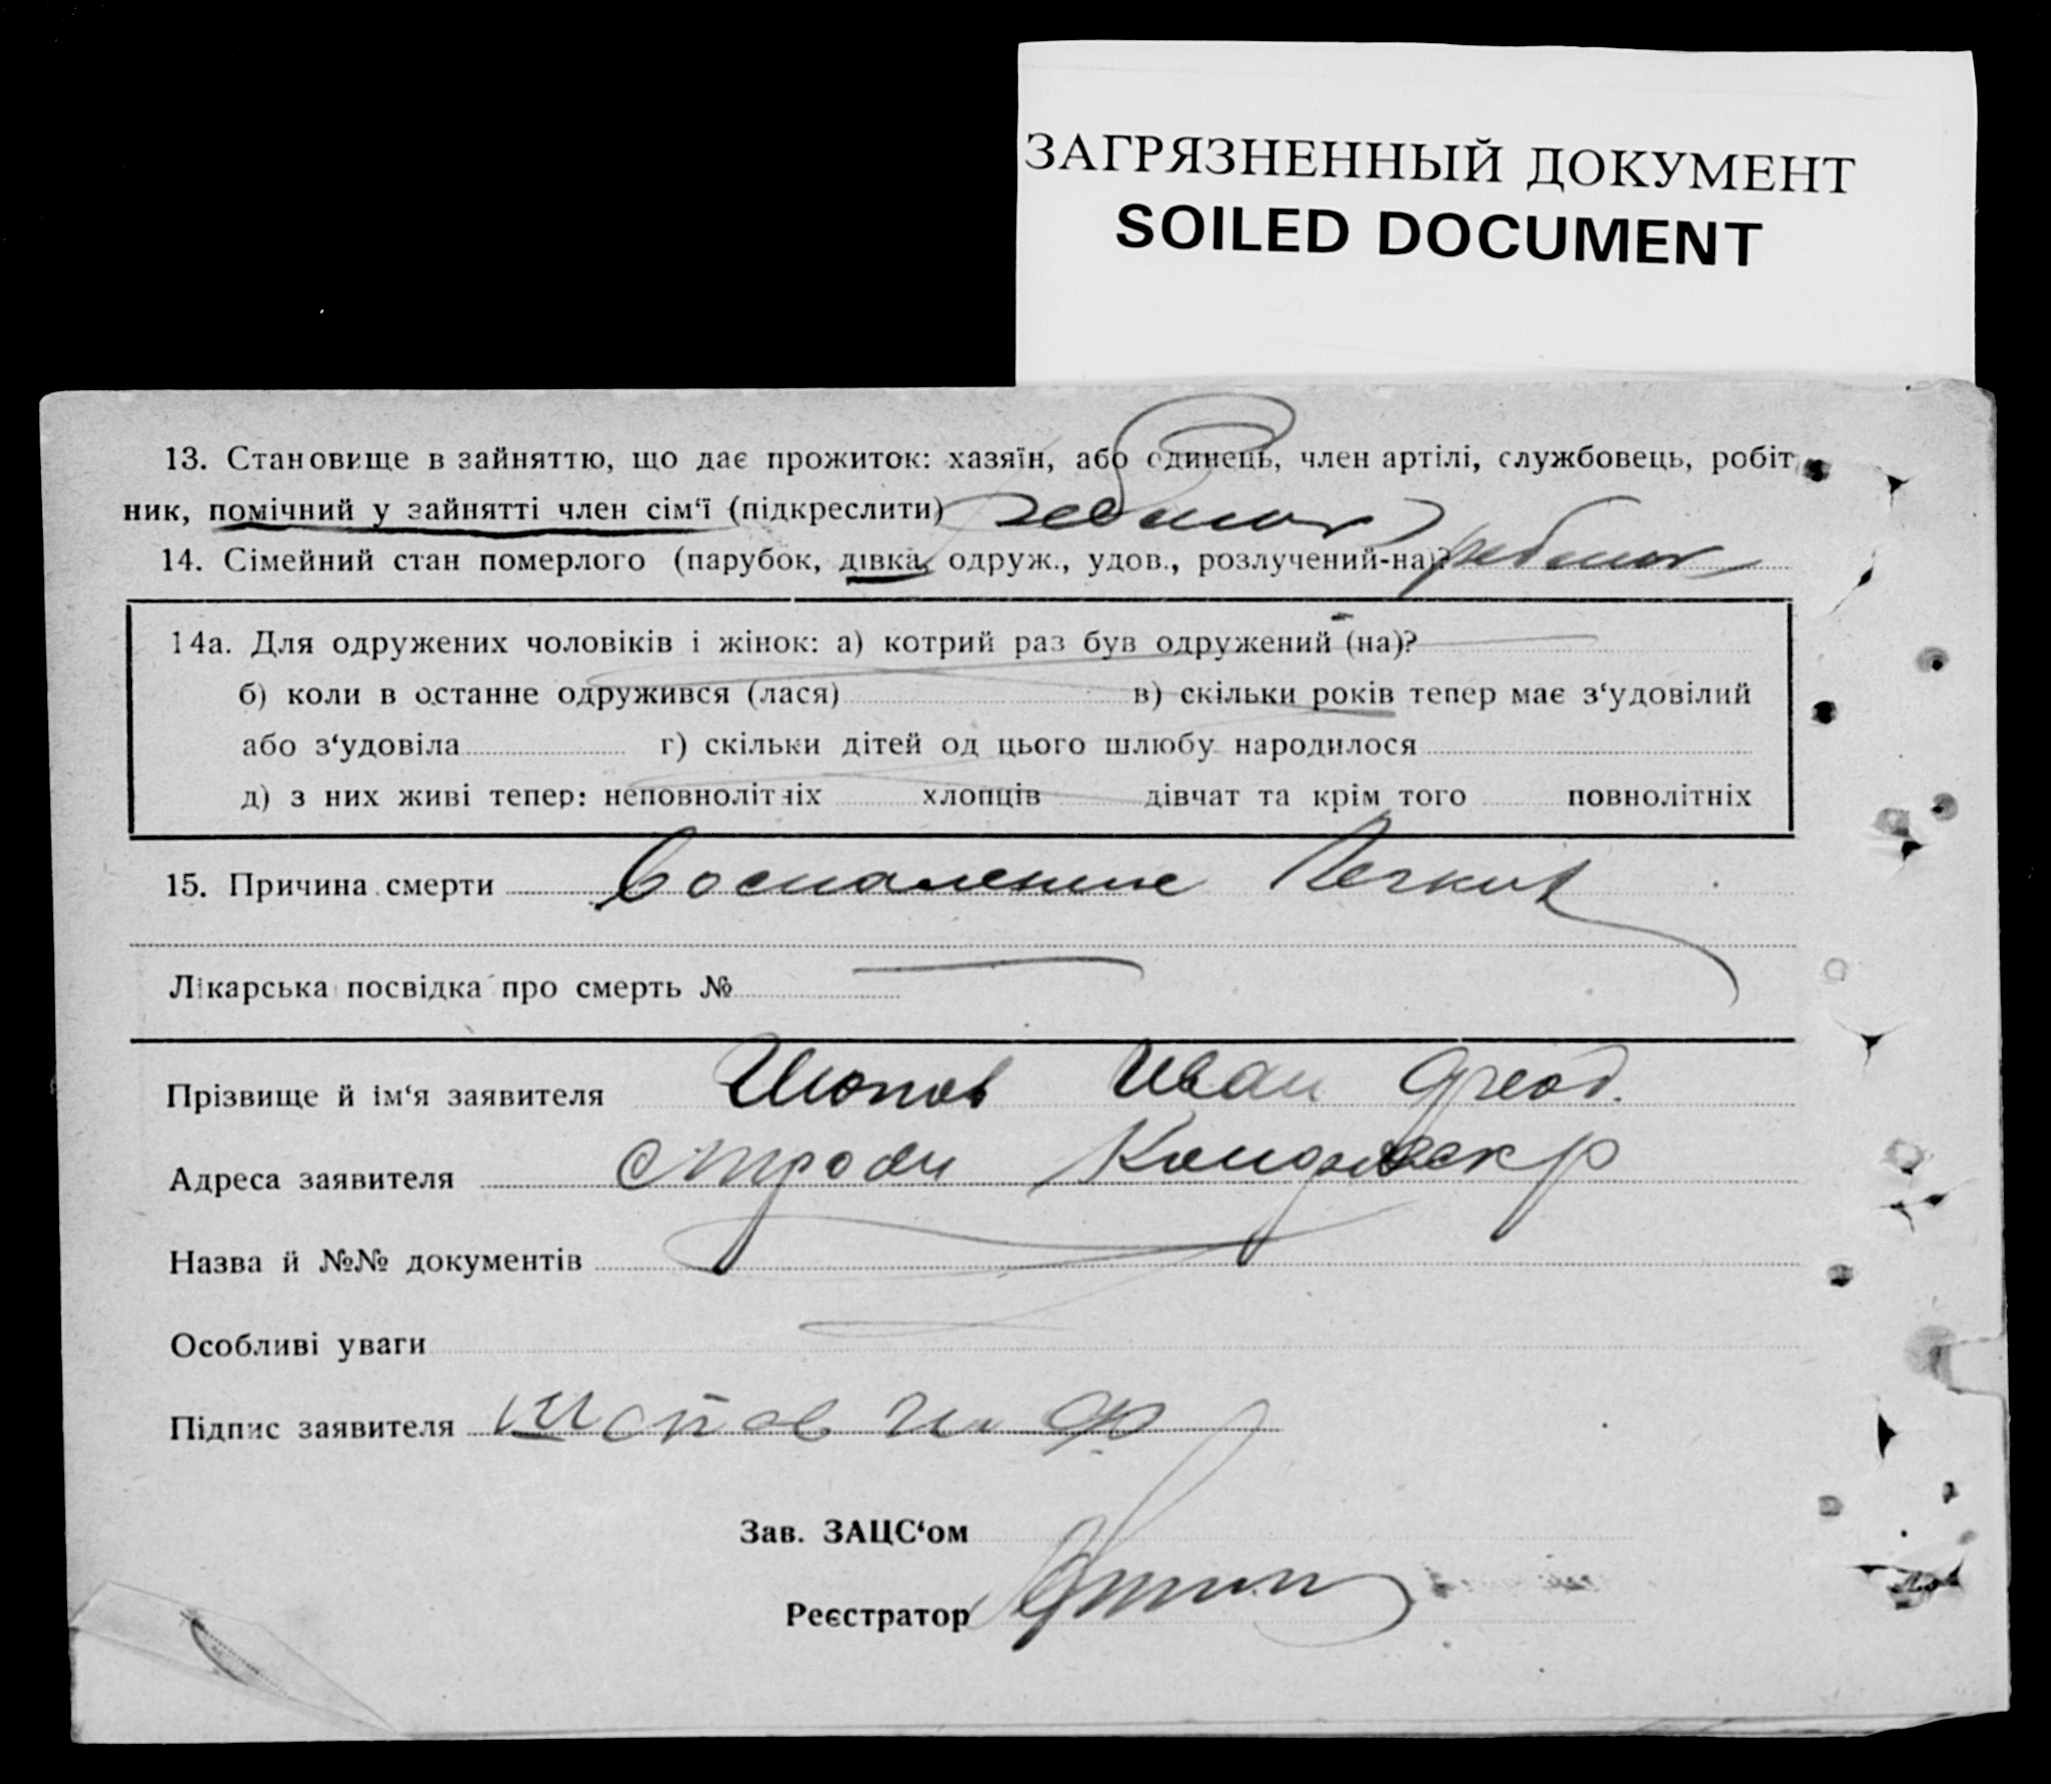 ЗАГРЯЗНЕННЫЙ ДОКУМЕНТ
SOILED DOCUMENT
13. Становище в зайняттю, що дає прожиток: хазяїн, або одинець, член артілі, службовець, робіт
ник, помічний у зайнятті член сім‘ї (підкреслити) ребенок
14. Сімейний стан померлого (парубок, дівка, одруж., удов., розлучений-на)? ребенок
14а. Для одружених чоловіків і жінок: а) котрий раз був одружений (на)?
б) коли в останне одружився (лася) в) скільки років тепер має з‘удовілий
або з‘удовіла г) скільки дітей од цього шлюбу народилося
д) з них живі тепер: неповнолітніх хлопців дівчат та крім того повнолітніх
15. Причина смерти Воспаление Легких
Лікарська посвідка про смерть №
Прізвище й ім‘я заявителя Шопов Иван Феод.
Адреса заявителя
Назва й №№ документів
Особливі уваги
Підпис заявителя Шопов И Ф
Зав. ЗАЦС‘ом
Реєстратор